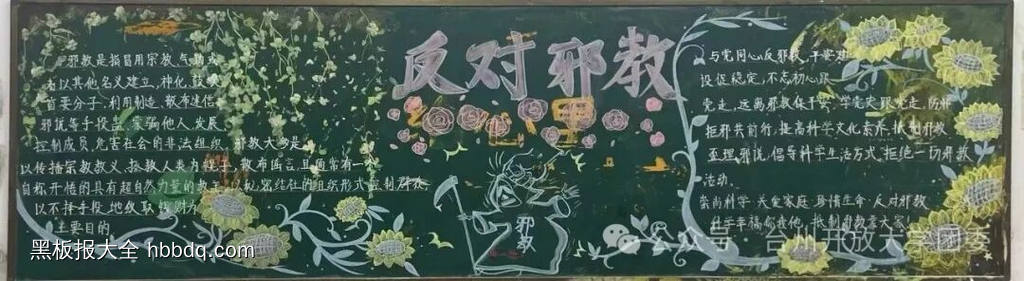 反对邪教
邪教是指冒用宗教气功或
者以其他名义建立,神化,鼓吹
首要分子,利用制造,散布迷信
邪说等手段蛊惑蒙骗他人,发展,
控制成员,危害社会的非法组织。邪教大多是
以传播宗教教义、拯救人类为幌子,散布谣言,且通常有一
自称开悟的具有超自然力量的教主,以秘密结社的组织形式控制群众
以不择手段地敛取钱财为
主要目的
邪教
与党同心反邪教,平安建
设促稳定,不忘初心跟
党走,远离邪教保平安,学党史跟党走,防邪
拒邪共前行,提高科学文化素养,抵制邪教
歪理邪说,倡导科学生活方式,拒绝一切邪教
活动。
崇尚科学 关爱家庭 珍惜生命·反对邪教
黑板报大全 hbbdq.com
公众号 台州开放大学团委